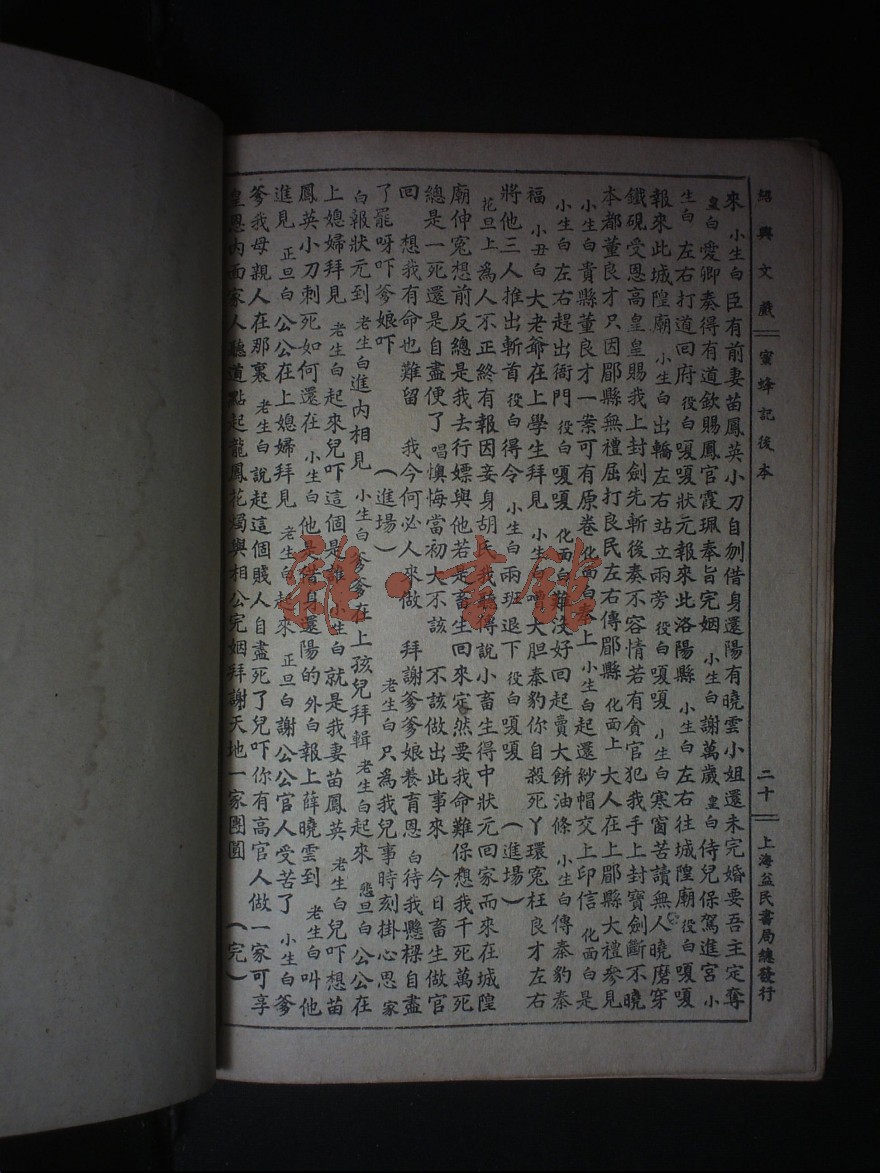 紹興文戲 蜜蜂記後本 二十 上海益民書局總發行
來 小生白臣有前妻苗鳳英小刀自刎借身還陽有曉雲小姐還未完婚要吾主定奪
皇白愛卿奏得有道欽賜鳳官霞珮奉旨完姻 小生白謝萬歲 皇白侍兒保駕進宮 小
生白 左右打道回府 役白嗄嗄狀元報來此洛陽縣 小生白左右往城隍廟 役白嗄嗄
報來此城隍廟 小生白出轎左右站立兩旁 役白嗄嗄 小生白寒窗苦讀無人曉磨穿
鐵硯受恩高皇皇賜我上封劍先斬後奏不容情若有貪官犯我手上封寶劍斷不曉
本都董良才只因鄙縣無禮屈打良民左右傳鄙縣 化面上大人在上鄙縣大禮參見
小生白貴縣董良才一案可有原卷 化面白奉上 小生白起還紗帽交上印信 化面白是
小生白左右趕出衙門 役白嗄嗄 化面白難沒好回起賣大餅油條 小生白傳秦豹秦
福 小丑白大老爺在上學生拜見 小生白嘈大胆秦豹你自殺死丫環冤枉良才左右
將他三人推出斬首 役白得令 小生白兩班退下 役白嗄嗄 (進場)
花旦上爲人不正終有報因妾身胡氏我聽得說小畜生得中狀元回家而來在城隍
廟伸冤想前反總是我去行嫖與他若是畜生回來定然要我命難保想我千死萬死
總是一死還是自盡便了 唱懊悔當初大不該 不該做出此事來 今日畜生做官
回 想我有命也難留 我今何必人來做 拜謝爹爹娘養育恩 白待我懸樑自盡
了罷呀吓爹娘吓 (進場) 老生白只為我兒事時刻掛心思 家
白報狀元到 老生白進內相見 小生白爹爹在上孩兒拜輯 老生白起來 悲旦白公公在
上媳婦拜見 老生白起來兒吓這個是誰 小生白就是我妻苗鳳英 老生白兒吓想苗
鳳英小刀刺死如何還在 小生白他是借身還陽的 外白報上薛曉雲到 老生白叫他
進見 正旦白公公在上媳婦拜見 老生白起來 正旦白謝公公官人受苦了 小生白爹
爹我母親人在那裏 老生白說起這個賤人自盡死了兒吓你有高官人做一家可享
皇恩內面家人聽道點起龍鳳花獨與相公完姻拜謝天地一家團圓 (完)
雜·書館